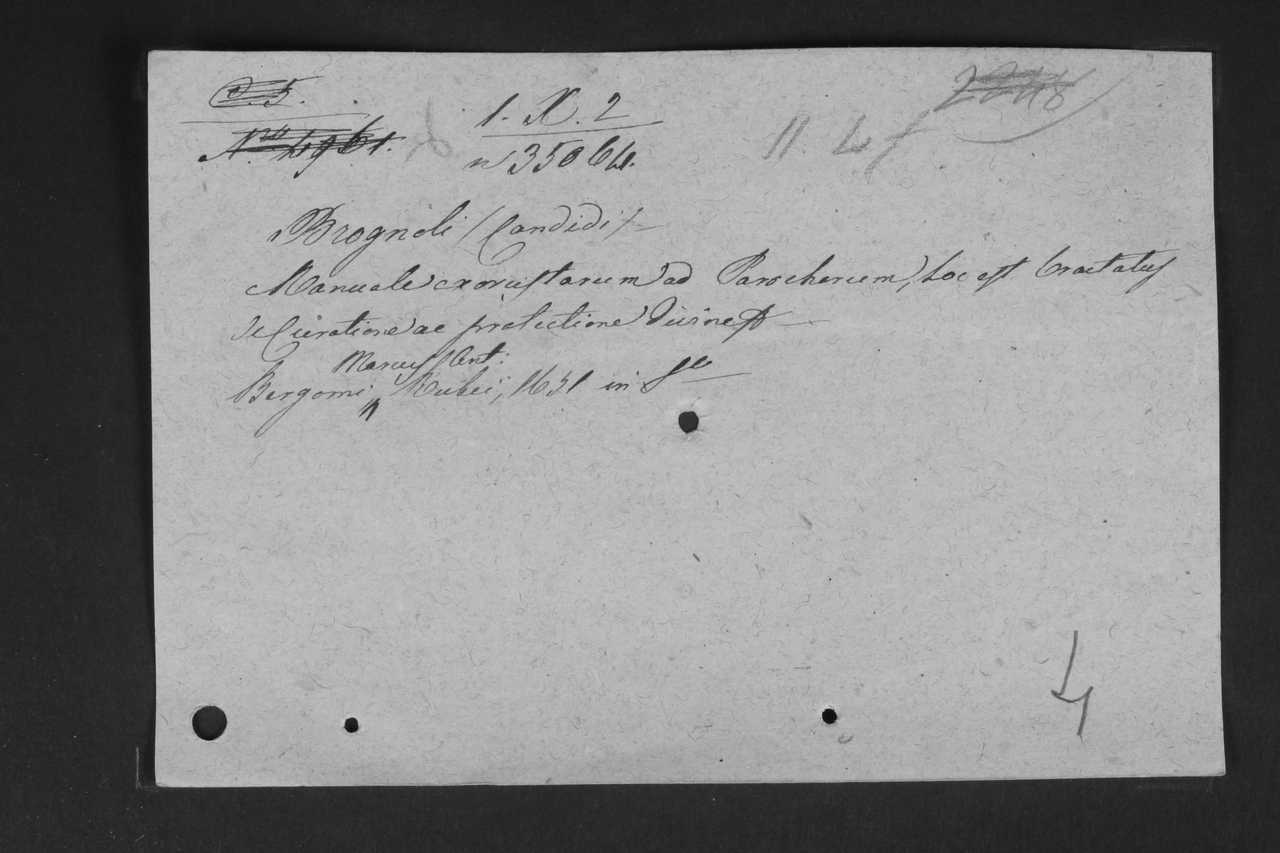 C. 5.
Nro 4961.
1. X. 2
n 35064.
2248
11. L f
Brognoli (Candidi)
Manuale exorcistarum ad Parochorum, hoc est tractatus
de Curatione ac protectione divina
Marcus Ant:
Bergomi, Rubei, 1651 in 8º
4